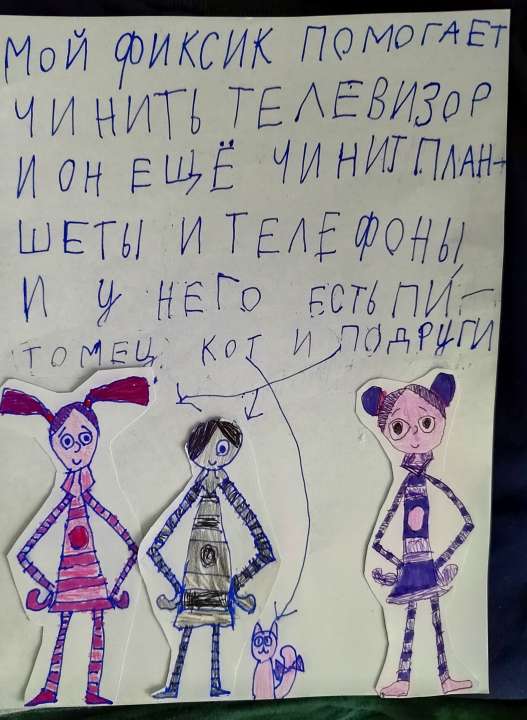 МОЙ ФИКСИК ПОМОГАЕТ
ЧИНИТЬ ТЕЛЕВИЗОР
И ОН ЕЩЁ ЧИНИТ ПЛАН-
ШЕТЫ И ТЕЛЕФОНЫ,
И У НЕГО ЕСТЬ ПИ-
ТОМЕЦ КОТ И ПОДРУГИ